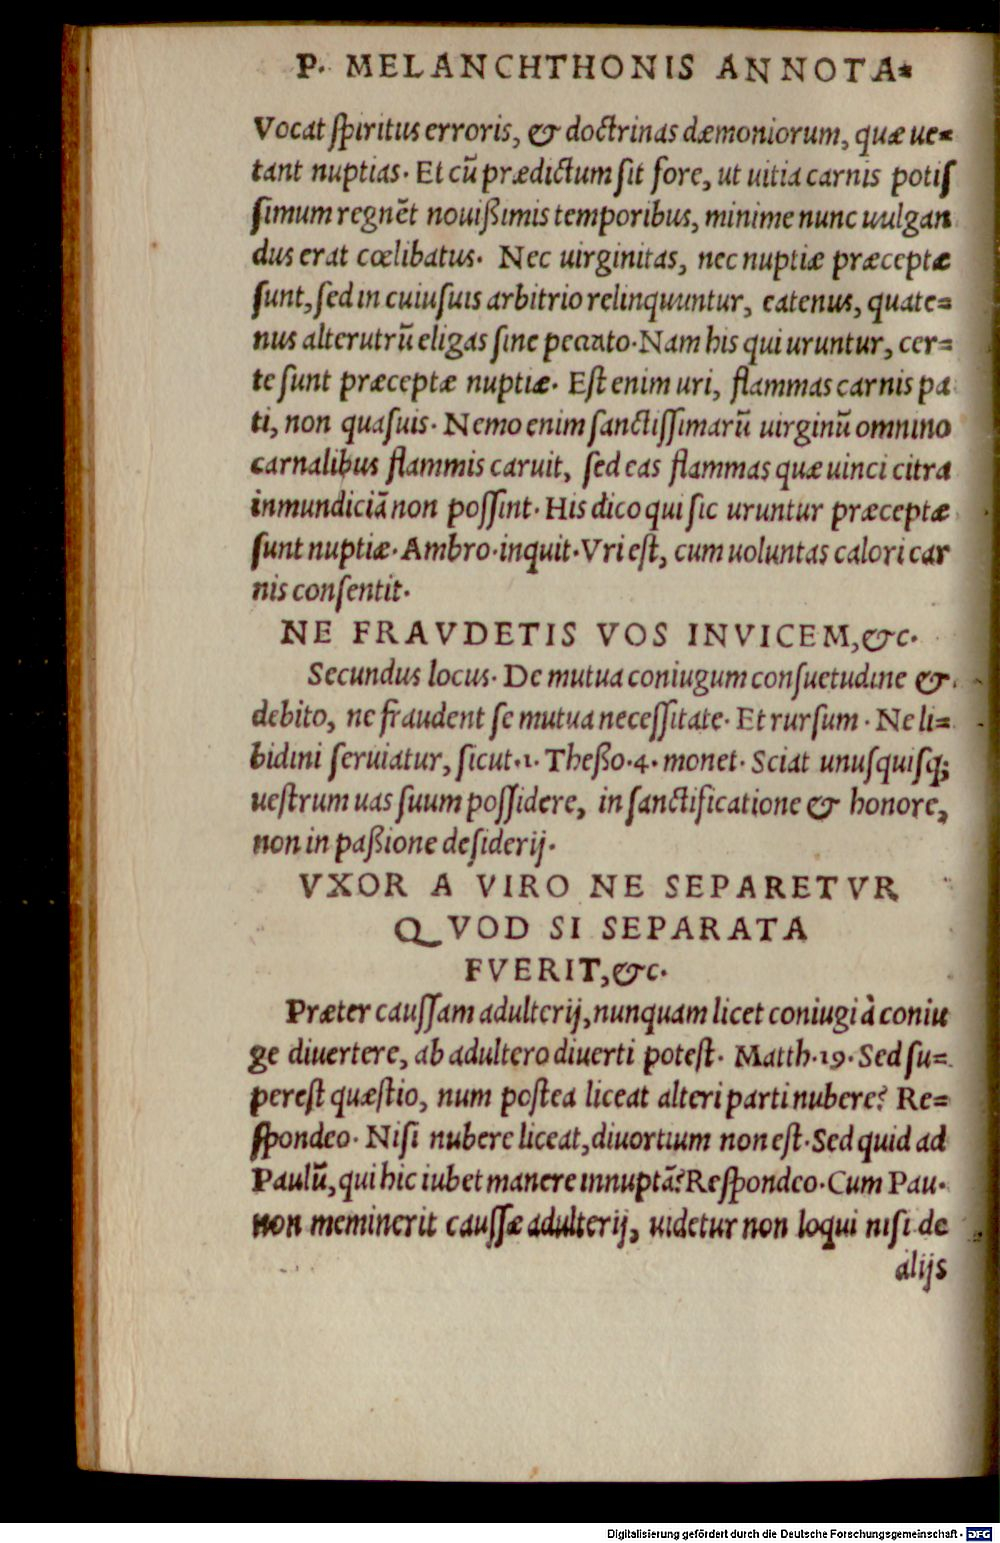 P. MELANCHTHONIS ANNOTA-
Vocat ſpiritus erroris, & doctrinas dæmoniorum, quæ ue-
tant nuptias. Et cũ prædictum ſit fore, ut uitia carnis potiſ
ſimum regnẽt nouißimis temporibus, minime nunc uulgan
dus erat cœlibatus. Nec uirginitas, nec nuptiæ præceptæ
ſunt, ſed in cuiuſuis arbitrio relinquuntur, eatenus, quate-
nus alterutrũ eligas ſine peccato. Nam his qui uruntur, cer-
te ſunt præceptæ nuptiæ. Eſt enim uri, flammas carnis pa
ti, non quaſuis. Nemo enim ſanctiſſimarũ uirginũ omnino
carnalibus flammis caruit, ſed eas flammas quæ uinci citra
inmundiciã non poſſint. His dico qui ſic uruntur præceptæ
ſunt nuptiæ. Ambro. inquit. Vri eſt, cum uoluntas calori car
nis conſentit.
NE FRAVDETIS VOS INVICEM, &c.
Secundus locus. De mutua coniugum conſuetudine &
debito, ne fraudent ſe mutua neceſſitate. Et rurſum. Ne li-
bidini ſeruiatur, ſicut .1. Theßo. 4. monet. Sciat unuſquiſq;
ueſtrum uas ſuum poſſidere, in ſanctificatione & honore,
non in paßione deſiderij.
VXOR A VIRO NE SEPARETVR
QVOD SI SEPARATA
FVERIT, &c.
Præter cauſſam adulterij, nunquam licet coniugi à coniu
ge diuertere, ab adultero diuerti poteſt. Matth. 19. Sed ſu-
pereſt quæſtio, num poſtea liceat alteri parti nubere? Re-
ſpondeo. Niſi nubere liceat, diuortium non eſt. Sed quid ad
Paulũ, qui hic iubet manere innuptã? Reſpondeo. Cum Pau.
non meminerit cauſſæ adulterij, uidetur non loqui niſi de
alijs
Digitalisierung gefördert durch die Deutsche Forschungsgemeinschaft - DFG